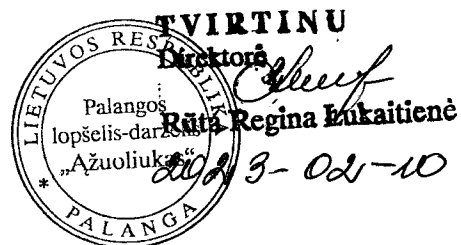 TVIRTINU
Direktorė
Rūta Regina Lukaitienė
2023-02-10
LIETUVOS RESPUBLIKA
Palangos
lopšelis-darželis
„Ąžuoliukas“
* PALANGA *